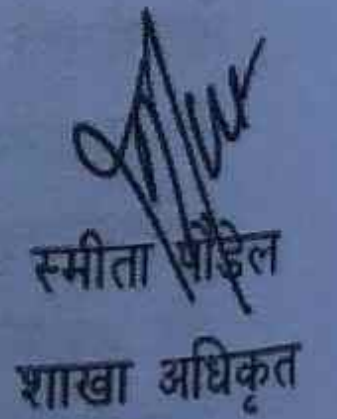 स्मीता पौडेल
शाखा अधिकृत